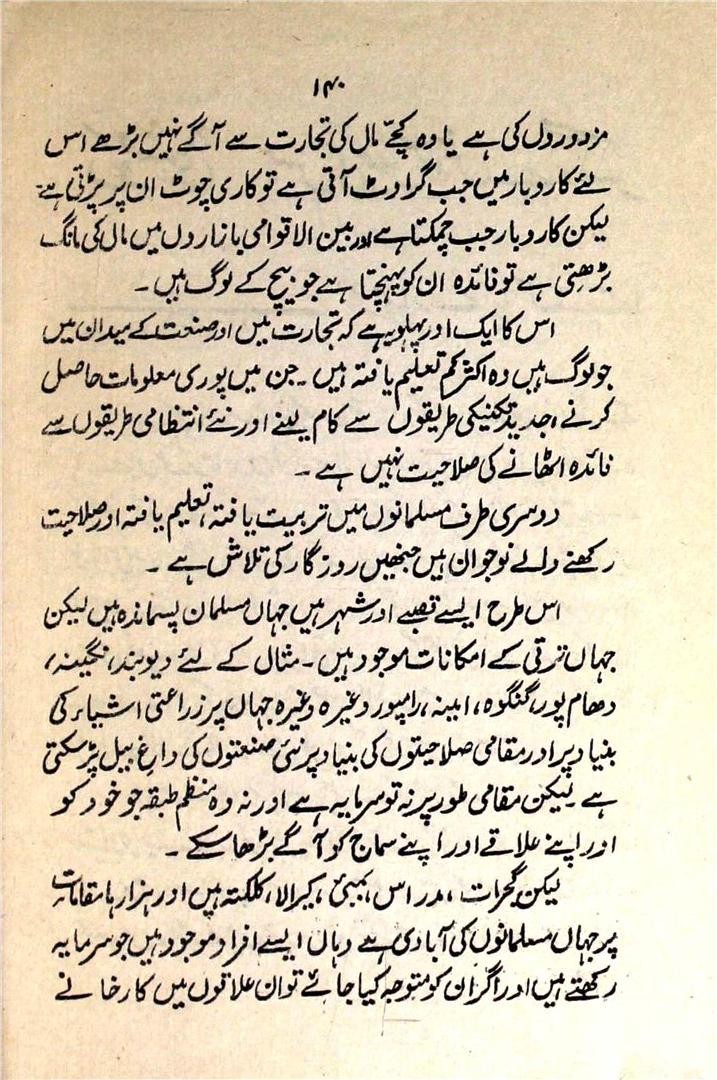 ۱۴۰
مزدوروں کی ہے یا وہ کچّے مال کی تجارت سے آگے نہیں بڑھے اس
لئے کاروبار میں جب گراوٹ آتی ہے تو کاری چوٹ ان پر پڑتی ہے۔
لیکن کاروبار جب چمکتا ہے اور بین الاقوامی بازاروں میں مال کی مانگ
بڑھتی ہے تو فائدہ ان کو پہنچتا ہے جو بیچ کے لوگ ہیں۔
اس کا ایک اور پہلو یہ ہے کہ تجارت میں اور صنعت کے میدان میں
جو لوگ ہیں وہ اکثر کم تعلیم یافتہ ہیں۔ جن میں پوری معلومات حاصل
کرنے، جدید تکنیکی طریقوں سے کام لینے اور نئے انتظامی طریقوں سے
فائدہ اٹھانے کی صلاحیت نہیں ہے۔
دوسری طرف مسلمانوں میں تربیت یافتہ، تعلیم یافتہ اور صلاحیت
رکھنے والے نوجوان ہیں جنھیں روزگار کی تلاش ہے۔
اس طرح ایسے قصبے اور شہر ہیں جہاں مسلمان پسماندہ ہیں لیکن
جہاں ترقی کے امکانات موجود ہیں۔ مثال کے لئے دیوبند، نگینہ،
دھام پور، گنگوہ، ابینہ، رامپور وغیرہ وغیرہ جہاں پر زراعتی اشیاء کی
بنیاد پر اور مقامی صلاحیتوں کی بنیاد پر نئی صنعتوں کی داغ بیل پڑ سکتی
ہے لیکن مقامی طور پر نہ تو سرمایہ ہے اور نہ وہ منظم طبقہ جو خود کو
اور اپنے علاقے اور اپنے سماج کو آگے بڑھا سکے۔
لیکن گجرات، مدراس، بمبئی، کیرالا، کلکتہ میں اور ہزارہا مقامات
پر جہاں مسلمانوں کی آبادی ہے وہاں ایسے افراد موجود ہیں جو سرمایہ
رکھتے ہیں اور اگر ان کو متوجہ کیا جائے تو ان علاقوں میں کارخانے